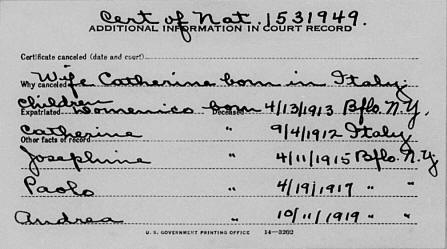 Cert of Nat. 1531949.
ADDITIONAL INFORMATION IN COURT RECORD
Certificate canceled (date and court)
Wife Catherine born in Italy.
Why canceled
Children Domenico born 4/13/1913 Bflo. N.Y.
Expatriated Deceased
Catherine " 9/4/1912 Italy
Other facts of record
Josephine " 4/11/1915 Bflo. N.Y
Paolo " 4/19/1917 " "
Andrea " 10/11/1919 " "
U. S. GOVERNMENT PRINTING OFFICE 14—3202